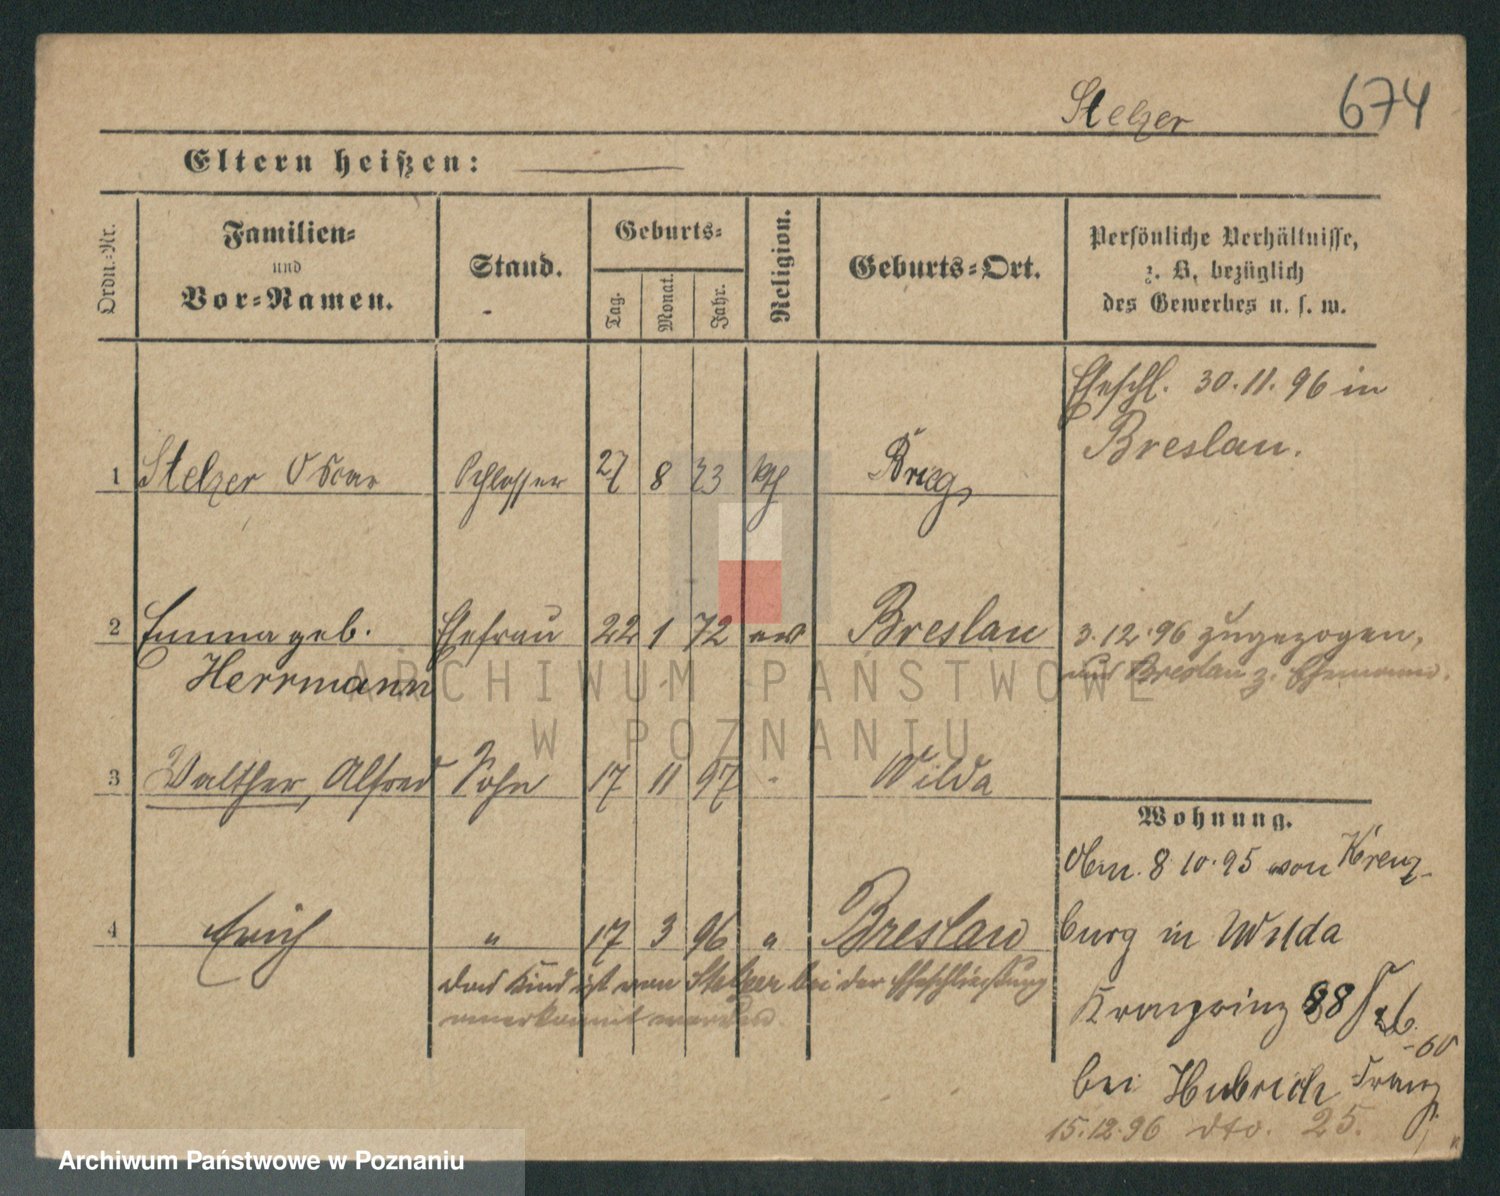 Stelzer 674
Eltern heißen:
Ordn.-Nr.
Familien-
und
Vor-Namen.
Stand.
Geburts-
Tag.
Monat.
Jahr.
Religion.
Geburts-Ort.
Persönliche Verhältnisse,
z. B. bezüglich
des Gewerbes u. s. w.
Eheschl. 30.11.96 in
Breslau.
1 Stelzer Oscar Schlosser 27 8 73 kth Brieg
2 Emma geb. Ehefrau 22 1 72 ev Breslau 3.12.96 zugezogen,
Herrmann
aus Breslau z. Ehemann.
3 Walther, Alfred Sohn 17 11 97 Wilda
Wohnung.
8.10.95 von Kreuz-
4 Erich " 17 3 96 " Breslau
burg in Wilda
das Kind ist von Stelzer bei der Eheschließung
anerkannt worden.
Kronprinz 88
bei Hubrich Franz
15.12.96 dto. 25.
ARCHIWUM PAŃSTWOWE
W POZNANIU
Archiwum Państwowe w Poznaniu